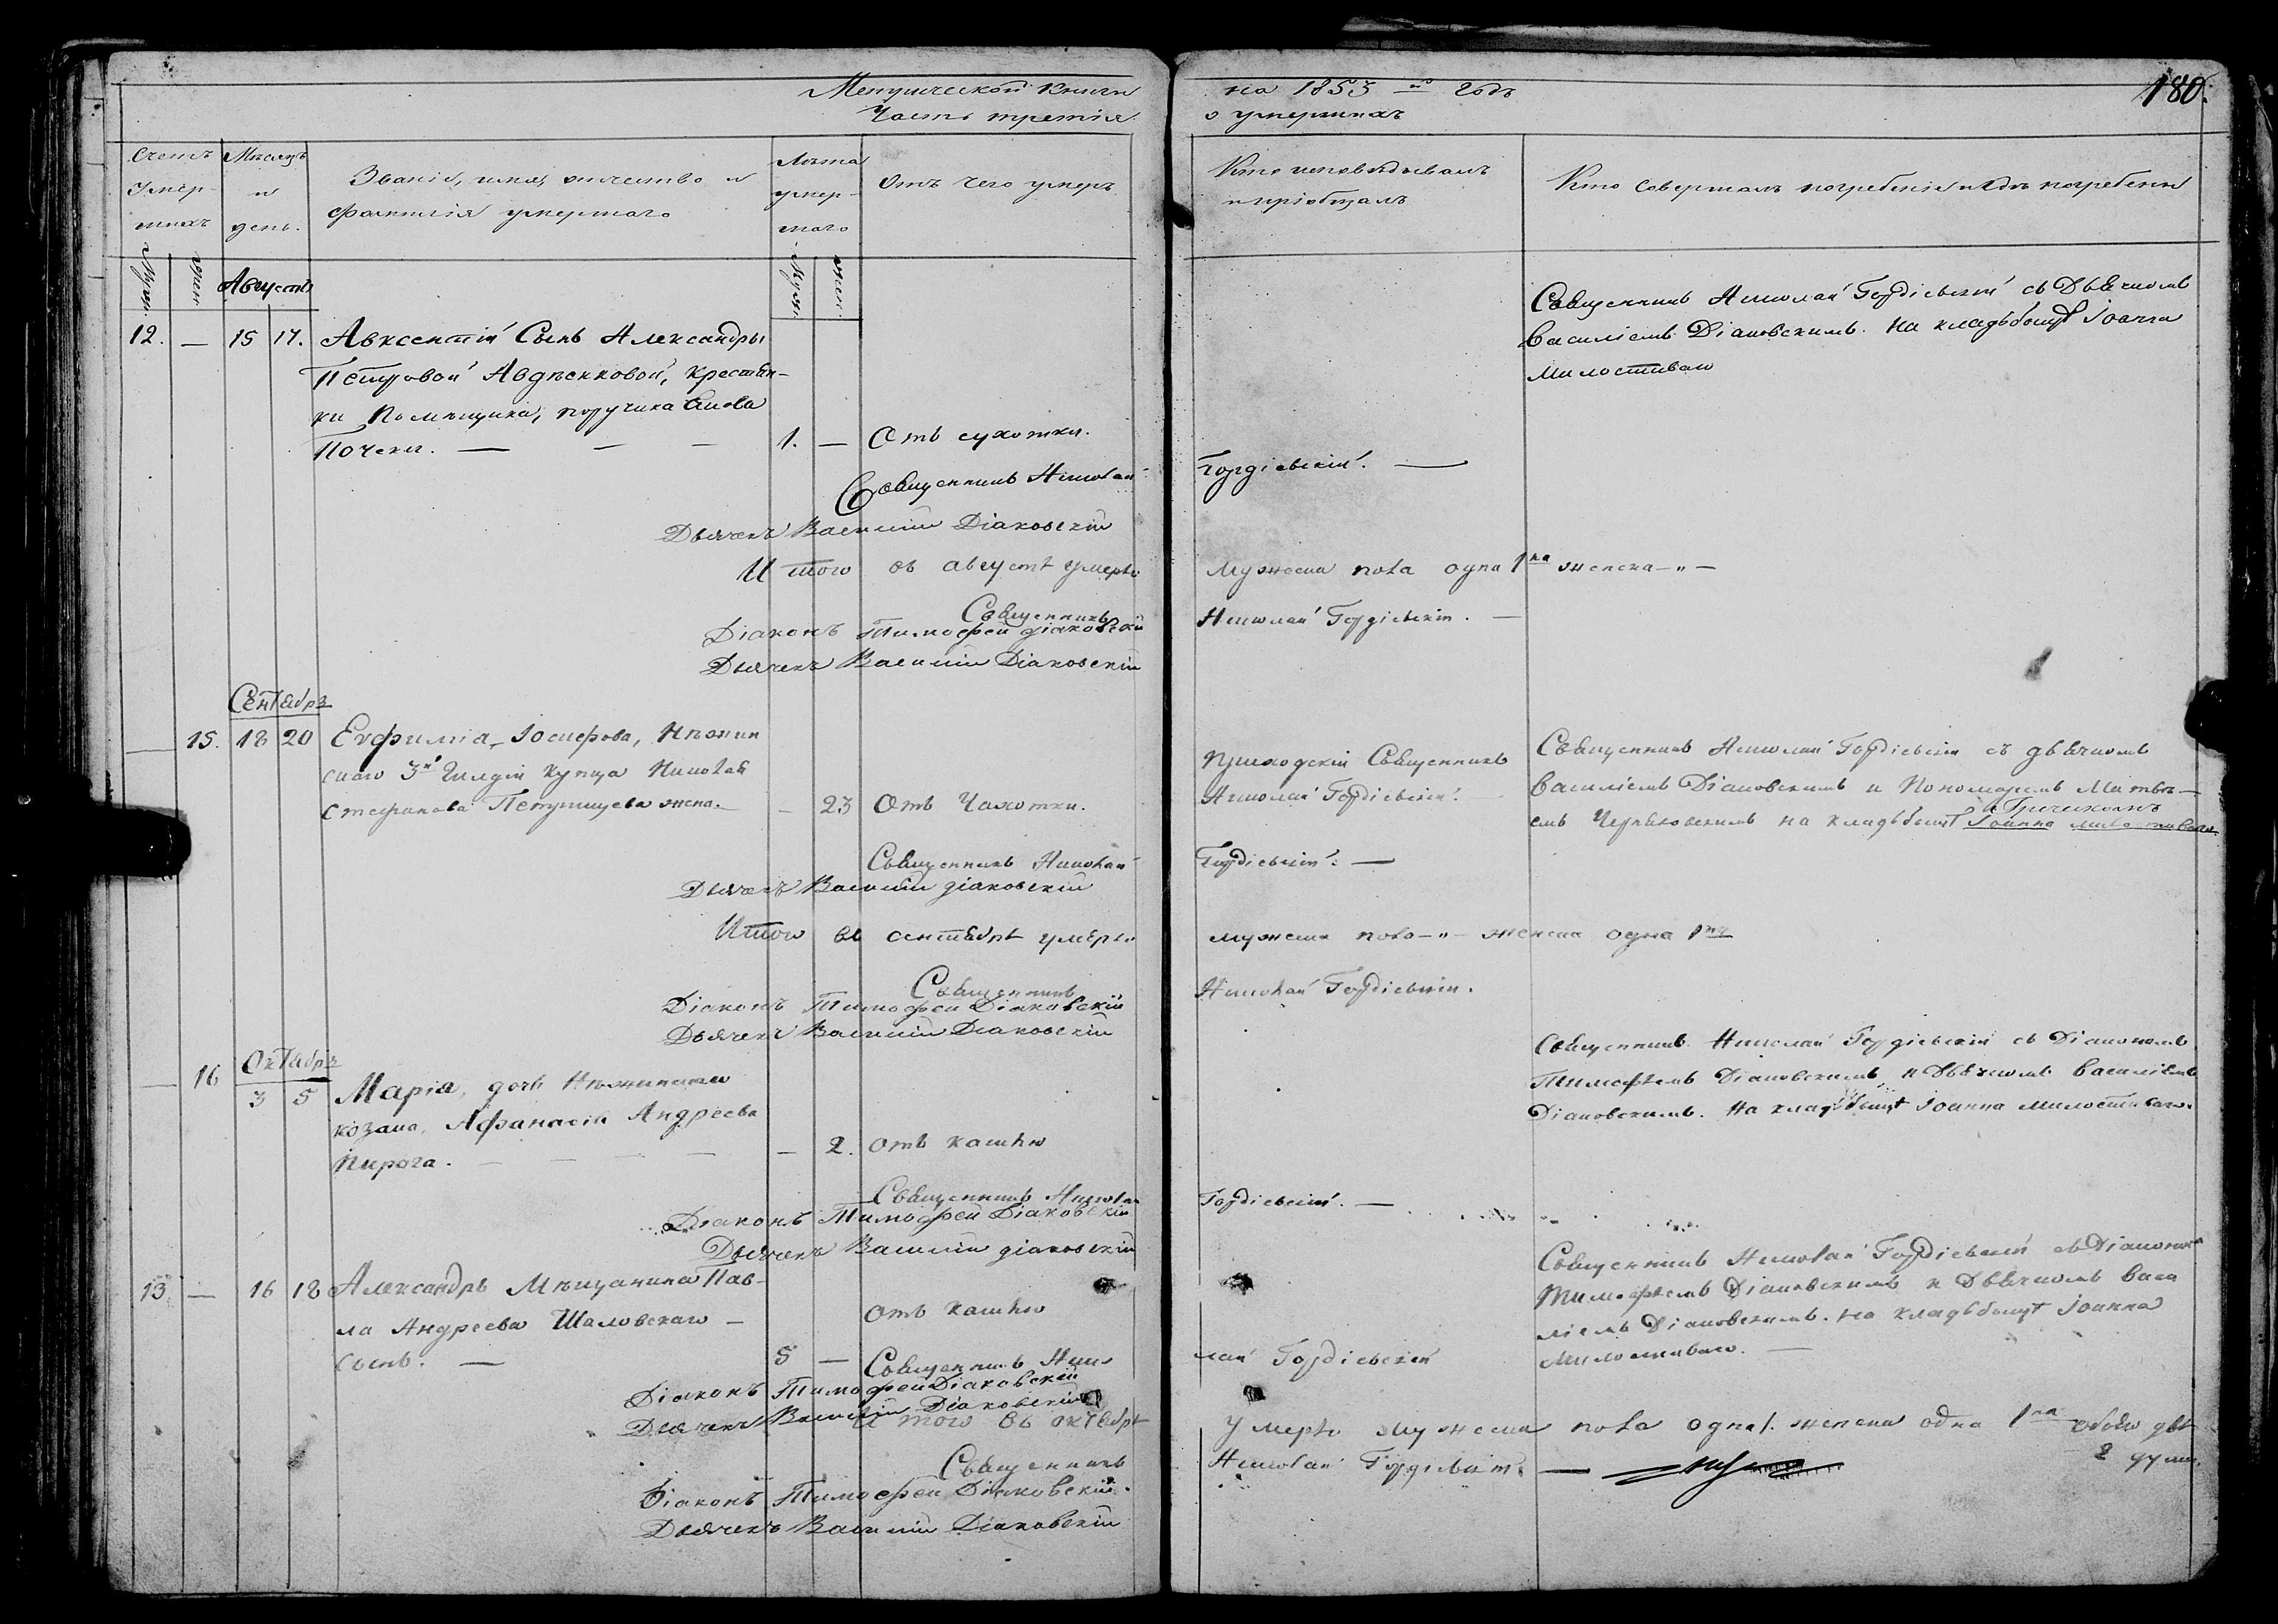 Метрической книги
Часть третія
на 1853 й годъ
о умершихъ
180.
Счетъ умер-шихъ
Мѣсяцъ и день.
Званіе, имя, отчество и фамилія умершаго
Лѣта умер-шаго
Отъ чего умеръ
Кто исповѣдывалъ и пріобщалъ
Кто совершалъ погребеніе и гдѣ погребены
Муж.
Жен.
Муж.
Жен.
Августъ
12. — 15 17. Авксентій Сынъ Александры
Петровой Авдѣенковой, крестьян-
ки Помѣщика, поручика
Почеки. — — — 1. — Отъ сухотки.
Священникъ Николай Гордіевскій съ Дьячкомъ
Василіемъ Діаковскимъ. На кладьбищѣ Іоанна
Милостиваго
Священникъ Николай Гордіевскій. —
Дьячекъ Василій Діаковскій
Итого въ августѣ умерло Мужеска пола одна 1на женска — „ —
Священникъ Николай Гордіевскій. —
Діаконъ Тимофей Діаковскій
Дьячекъ Василій Діаковскій
Сентябрь
— 15. 18 20 Евфимія, Іосифова, Нѣжин
скаго 3й Гилдіи купца Николая
Стефанова Петришева жена. — — 23 Отъ Чахотки.
Приходскій Священникъ
Николай Гордіевскій.
Священникъ Николай Гордіевскій съ дьячкомъ
Василіемъ Діаковскимъ и Пономаремъ Матвѣ—
емъ Черняховскимъ на кладьбищѣ Греческомъ Іоанна милостиваго.
Священникъ Николай Гордіевскій. —
Дьячекъ Василій Діаковскій
Итого въ сентябрѣ умерло мужеска пола — „ — женска одна 1на
Священникъ Николай Гордіевскій.
Діаконъ Тимофей Діаковскій
Дьячекъ Василій Діаковскій
Октябрь
— 16 3 5 Марія, дочь Нѣжинскаго
козака, Афанасія Андреева
Пирога. — — — — — 2. Отъ кашлю
Священникъ Николай Гордіевскій съ Діакономъ
Тимофѣемъ Діаковскимъ, и Дьячкомъ Василіемъ
Діаковскимъ. На кладьбищѣ Іоанна Милостиваго.
Священникъ Николай Гордіевскій. —
Діаконъ Тимофей Діаковскій
Дьячекъ Василій Діаковскій
13. — 16 18 Александръ Мѣщанина Пав-
ла Андреева Шаловскаго —
Сынъ. — 5 — Отъ кашлю
Священникъ Николай Гордіевскій съ Діакономъ
Тимофѣемъ Діаковскимъ и Дьячкомъ Васи
ліемъ Діаковскимъ. На кладьбищѣ Іоанна
Милостиваго. —
Священникъ Николай Гордіевскій
Діаконъ Тимофей Діаковскій
Дьячекъ Василій Діаковскій
Итого въ октябрѣ умерло мужеска пола одна 1. женска одна 1на обоего двѣ
2 души.
Священникъ Николай Гордіевскій. —
Діаконъ Тимофей Діаковскій.
Дьячекъ Василій Діаковскій